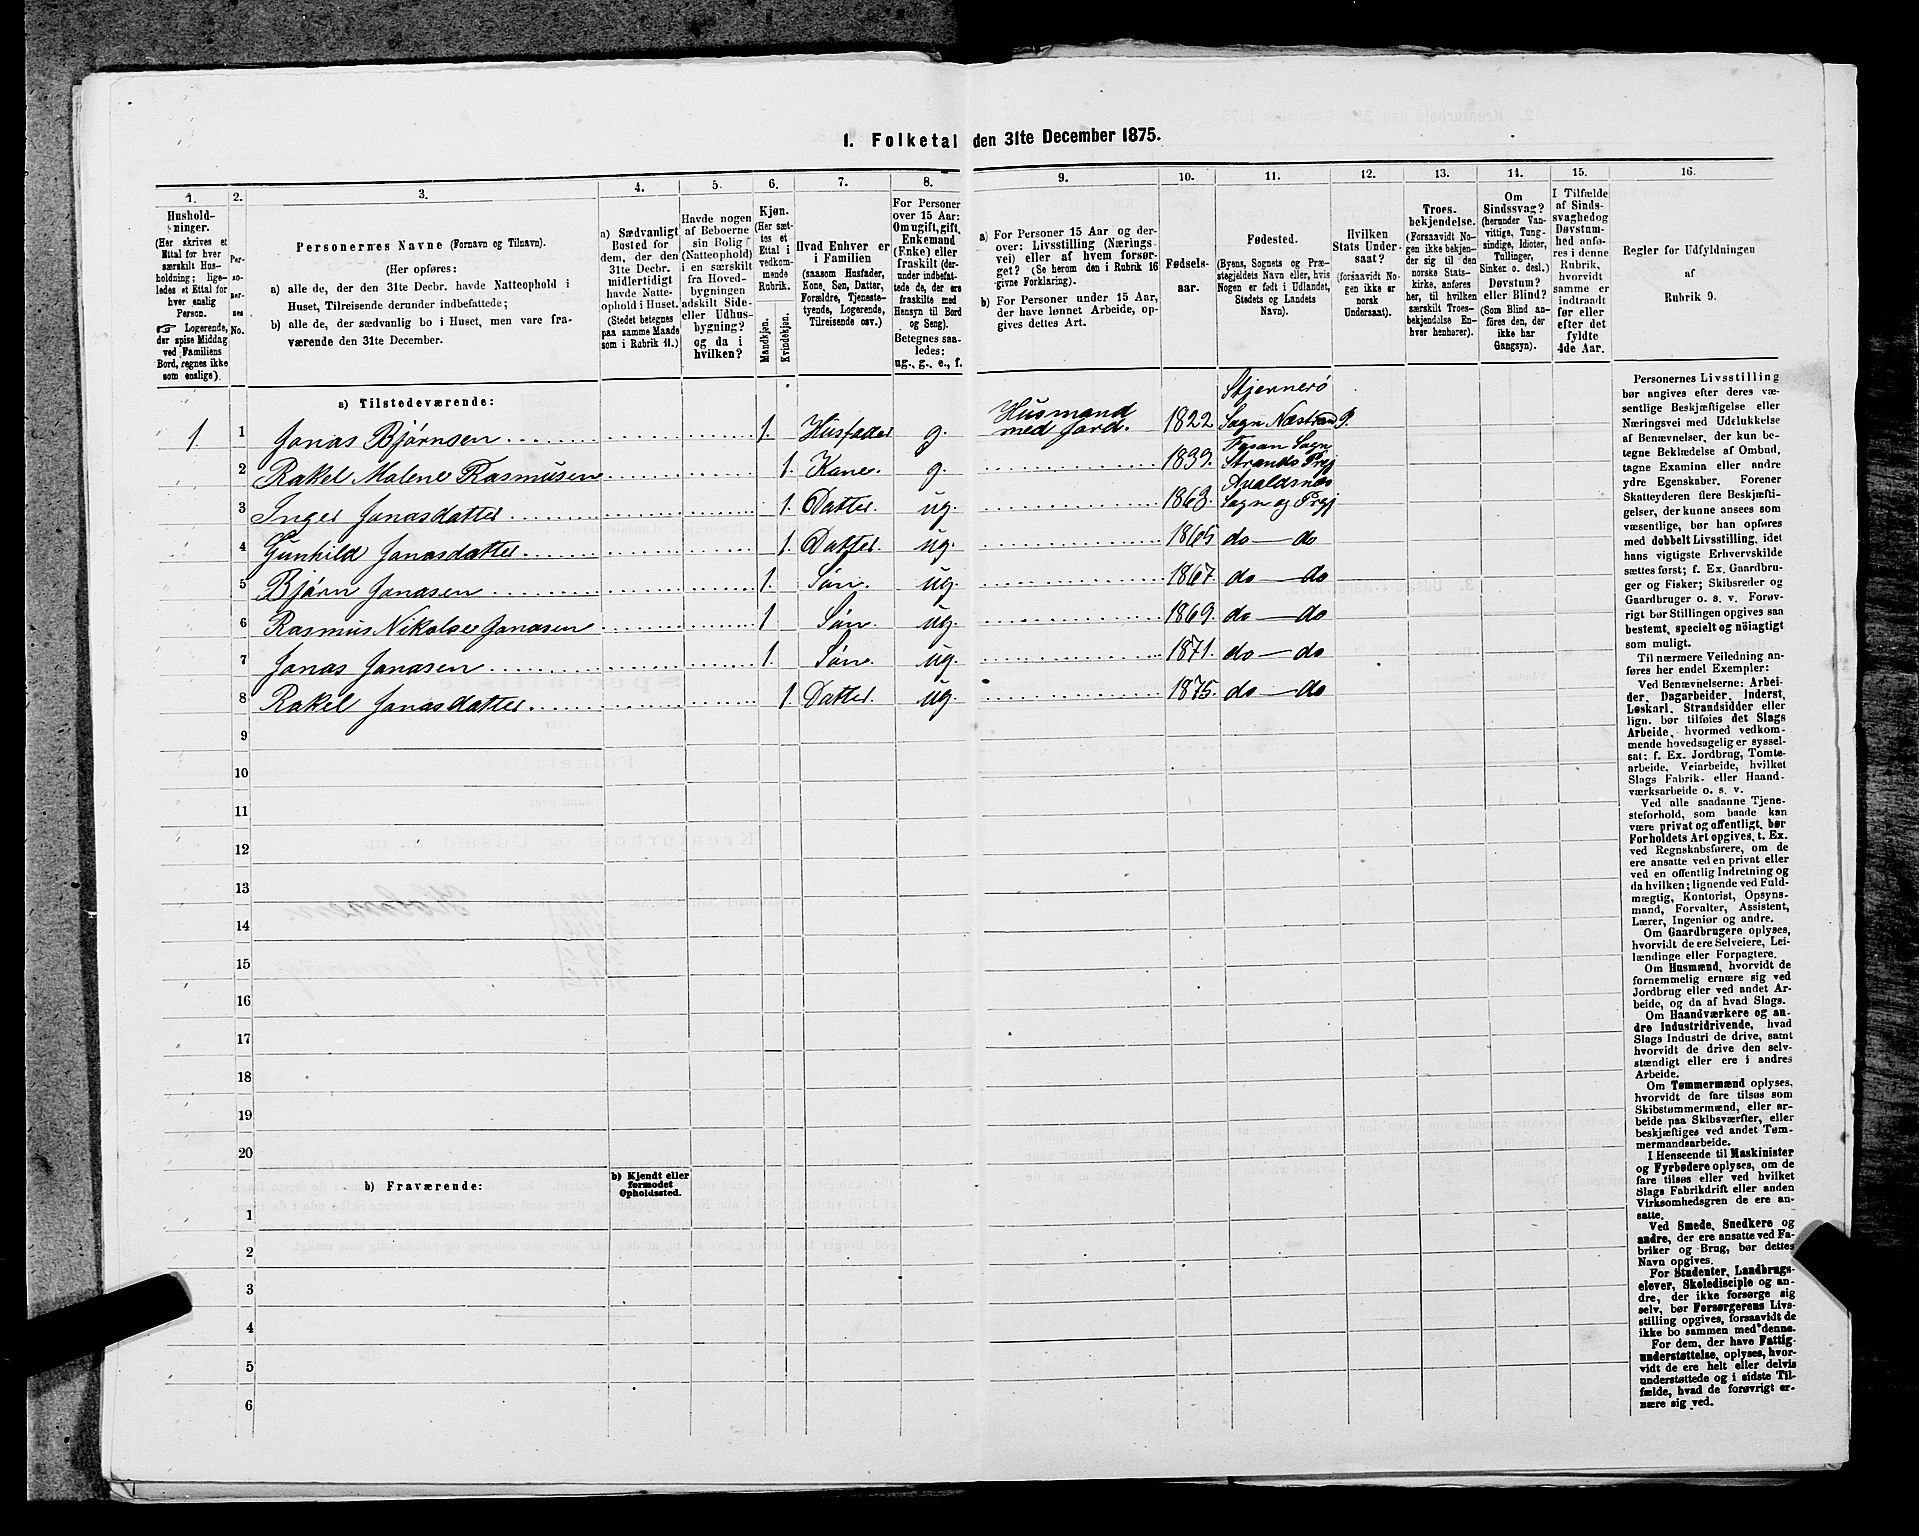 1. Folketal den 31te December 1875.
1.
Hushold-
ninger.
(Her skrives et
Ettal for hver
særskilt Hus-
holdning; lige-
ledes et Ettal for
hver enslig
Person.
☞ Logerende,
der spise Middag
ved Familiens
Bord, regnes ikke
som enslige).
2.
Per-
so-
ner-
nes
No.
3.
Personernes Navne (Fornavn og Tilnavn).
(Her opføres:
a) alle de, der den 31te Decbr. havde Natteophold i
Huset, Tilreisende derunder indbefattede;
b) alle de, der sædvanlig bo i Huset, men vare fra-
værende den 31te December.
4.
a) Sædvanligt
Bosted for
dem, der den
31te Decbr.
midlertidigt
havde Natte-
ophold i Huset.
(Stedet betegnes
paa samme Maade
som i Rubrik 11.)
5.
Havde nogen
af Beboerne
sin Bolig
(Natteophold)
i en særskilt
fra Hoved-
bygningen
adskilt Side-
eller Udhus-
bygning?
og da i
hvilken?
6.
Kjøn.
(Her sæt-
tes et
Ettal i
vedkom-
mende
Rubrik.
Mandkjøn.
Kvindekjøn.
7.
Hvad Enhver er
i Familien
(saasom Husfader,
Kone, Søn, Datter,
Forældre, Tjeneste-
tyende, Logerende,
Tilreisende osv.)
8.
For Personer
over 15 Aar:
Om ugift, gift,
Enkemand
(Enke) eller
fraskilt (der-
under indbefat-
tede de, der ere
fraskilte med
Hensyn til Bord
og Seng).
Betegnes saa-
ledes:
ug., g., e., f.
9.
a) For Personer 15 Aar og der-
over: Livsstilling (Nærings-
vei) eller af hvem forsør-
get? (Se herom den i Rubrik 16
givne Forklaring).
b) For Personer under 15 Aar,
der have lønnet Arbeide, op-
gives dettes Art.
10.
Fødsels-
aar.
11.
Fødested.
(Byens, Sognets og Præ-
stegjeldets Navn eller, hvis
Nogen er født i Udlandet,
Stedets og Landets
Navn).
12.
Hvilken
Stats Under-
saat?
(forsaavidt No-
gen ikke er
norsk
Undersaat).
13.
Troes-
bekjendelse.
(Forsaavidt No-
gen ikke bekjen-
der sig til den
norske Stats-
kirke, anføres
her, til hvilken
særskilt Troes-
bekjendelse En-
hver henhører).
14.
Om
Sindssvag?
(herunder Van-
vittige, Tung-
sindige, Idioter,
Tullinger,
Sinker o. desl.)
Døvstum?
eller Blind?
(Som Blind an-
føres den, der
ikke har
Gangsyn).
15.
I Tilfælde
af Sinds-
svaghed og
Døvstum-
hed anfø-
res i denne
Rubrik,
hvorvidt
samme er
indtraadt
før eller
efter det
fyldte
4de Aar.
16.
Regler for Udfyldningen
af
Rubrik 9.
a) Tilstedeværende:
1. 1 Jonas Bjørnsen 1. Husfader g. Husmand med Jord. 1822 Stjernerø Sogn Næstrand P.
2 Rakel Malene Rasmusen 1. Kone. g. 1839. Fosan Sogn Strands Prgj
3 Inger Jonasdatter 1. Datter. ug. 1863. Avaldsnæs Sogn og Prgj
4 Gunhild Jonasdatter 1. Datter. ug. 1865 do — do
5 Bjørn Jonasen 1. Søn. ug. 1867. do — do
6 Rasmus Nikolae Jonasen 1 Søn. ug. 1869. do — do
7 Jonas Jonasen 1. Søn. ug. 1871. do — do
8 Rakel Jonasdatter 1. Datter. ug. 1875. do — do
9
10
11
12
13
14
15
16
17
18
19
20
b) Fraværende:
b) Kjendt eller
formodet
Opholdssted.
1
2
3
4
5
6
Personernes Livsstilling
bør angives efter deres væ-
sentlige Beskjæftigelse eller
Næringsvei med Udelukkelse
af Benævnelser, der kun be-
tegne Beklædelse af Ombud,
tagne Examina eller andre
ydre Egenskaber. Forener
Skatteyderen flere Beskjæfti-
gelser, der kunne ansees som
væsentlige, bør han opføres
med dobbelt Livsstilling, idet
hans vigtigste Erhvervskilde
sættes først; f. Ex. Gaardbru-
ger og Fisker; Skibsreder og
Gaardbruger o. s. v. Forøv-
rigt bør Stillingen opgives saa
bestemt, specielt og nöiagtigt
som muligt.
Til nærmere Veiledning an-
føres her endel Exempler:
Ved Benævnelserne: Arbei-
der, Dagarbeider, Inderst,
Løskarl, Strandsidder eller
lign. bør tilføies det Slags
Arbeide, hvormed vedkom-
mende hovedsagelig er syssel-
sat: f. Ex. Jordbrug, Tomte-
arbeide, Veiarbeide, hvilket
Slags Fabrik- eller Haand-
værksarbeide o. s. v.
Ved alle saadanne Tjene-
steforhold, som baade kan
være privat og offentligt, bør
Forholdets Art opgives, t. Ex.
ved Regnskabsførere, om de
ere ansatte ved en privat eller
ved en offentlig Indretning og
da hvilken; lignende ved Fuld-
mægtig, Kontorist, Opsyns-
mand, Forvalter, Assistent,
Lærer, Ingeniør og andre.
Om Gaardbrugere oplyses,
hvorvidt de ere Selveiere, Lei-
lændinge eller Forpagtere.
Om Husmænd, hvorvidt de
fornemmelig ernære sig ved
Jordbrug eller ved andet Ar-
beide, og da af hvad Slags.
Om Haandværkere og an-
dre Industridrivende, hvad
Slags Industri de drive, samt
hvorvidt de drive den selv-
stændigt eller ere i andres
Arbeide.
Om Tømmermænd oplyses,
hvorvidt de fare tilsøs som
Skibstømmermænd, eller ar-
beide paa Skibsværfter, eller
beskjæftiges ved andet Tøm-
mermandsarbeide.
I Henseende til Maskinister
og Fyrbødere oplyses, om de
fare tilsøs eller ved hvilket
Slags Fabrikdrift eller anden
Virksomhedsgren de ere an-
satte.
Ved Smede, Snedkere og
andre, der ere ansatte ved Fa-
briker og Brug, bør dettes
Navn opgives.
For Studenter, Landbrugs-
elever, Skoledisciple og an-
dre, der ikke forsørge sig
selv, bør Forsørgerens Livs-
stilling opgives, forsaavidt de
ikke bo sammen med denne.
For dem, der have Fattig-
understøttelse, oplyses, hvor-
vidt de ere helt eller delvis
understøttede og i sidste Til-
fælde, hvad de forøvrigt er-
nære sig ved.